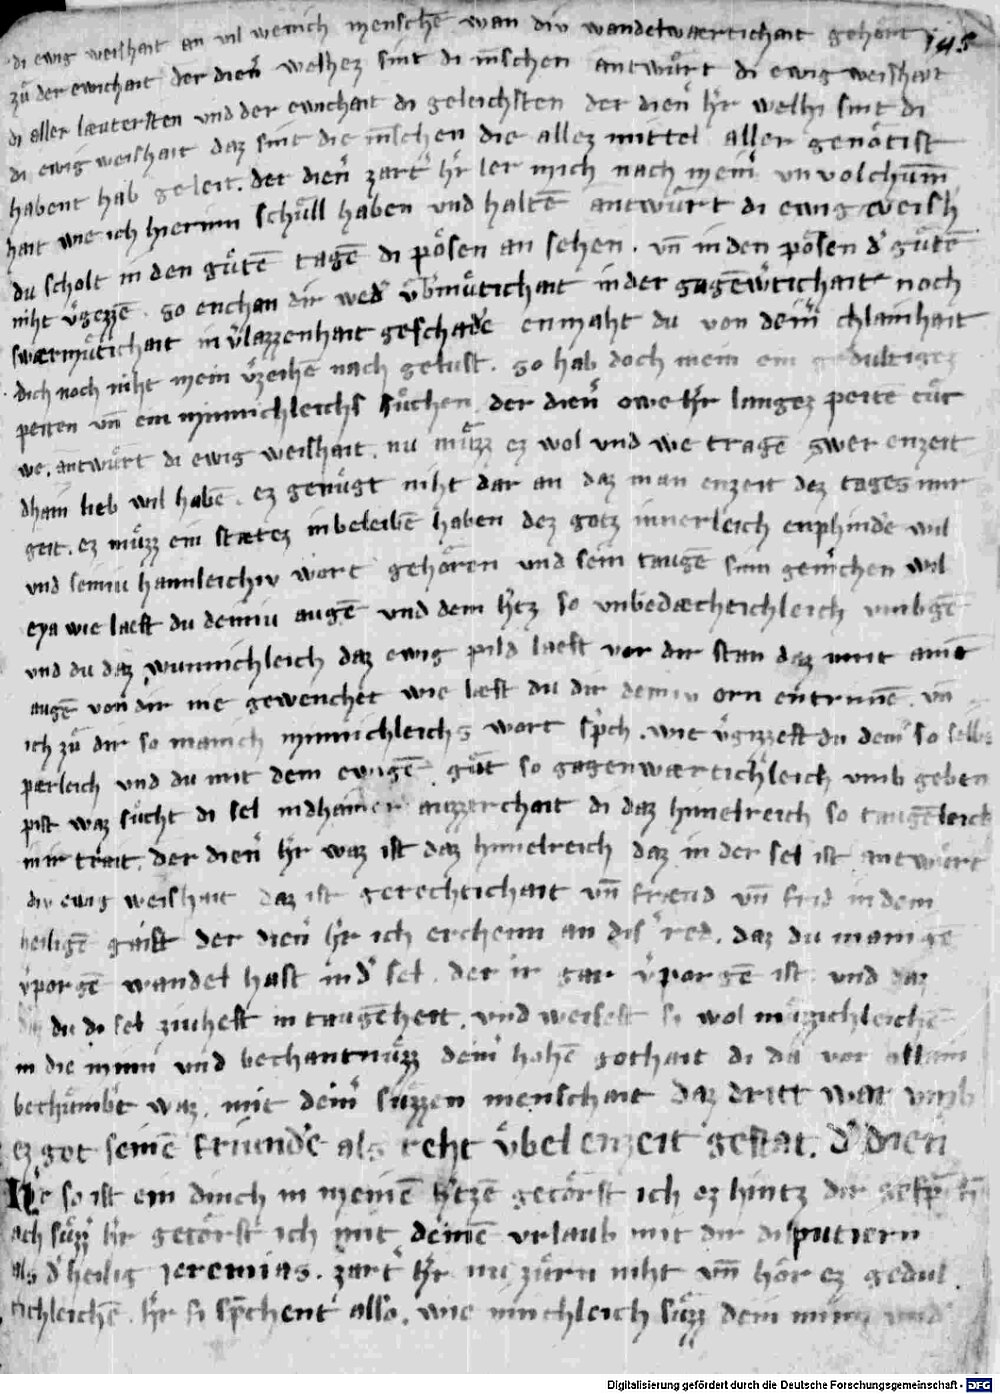 di ewig weishait an vil wenich mensche wan div wandelwærtichait gehört
145
zů der ewichait der dien welhez sint di mschen antwůrt di ewig weishait
di aller læutersten und der ewichait di geleichsten der dien hr welhi sint di
di ewig weishait daz sint die mschen die allez mittel aller genötist
habent hab geleit. der dien zart hr ler mich nach mein unvolchum
hait wie ich hierinn schüll haben und halte antwůrt di ewig weish
du scholt in den gůte tage di pösen an sehen. vn in den pösen d gůte
niht vgezze. so enchan dir wed vbmůtichait in der gagewrtichait noch
swærmůtichait in vlazzenhait geschade enmaht du von dein chlainhait
dich noch niht mein vzeihe nach gelust. so hab doch mein ein gedultigez
peiten vn ein minnichleichs sůchen der dien owe hr langez peite tůt
we. antwůrt di ewig weishait. nu můzz ez wol und we trage swer enzeit
dhain lieb wil habe. ez genůgt niht dar an daz man enzeit dez tages mir
geit. ez můzz ein stætez inbeleibe haben dez gotz innerleich enphinde wil
und seiniu haimleichiv wort gehören und sein tauge sinn gemchen wil
eya wie laest du deiniu auge und dein htz so unbedæchtichleich umbge
und du daz wunnichleich daz ewig pild laest vor dir stan daz mit aint
auge von dir nie gewenchet wie læst du dir deiniv orn entrinne. vn
ich zů dir so manich minnichleichs wort spch. wie vgizzest du dein so selb
perleich und du mit dem ewige gůt so gagenwærtichleich umb geben
pist waz sůcht di sel in dhainer auzzerchait di daz himelreich so taugeleich
in ir trait. der dien hr waz ist daz himelreich daz in der sel ist antwůrt
div ewig weishait daz ist gerechtichait vn freud vn frid in dem
heilige gaist der dien hr ich erchenn an dis red. daz du manige
vporge wandel hast in d sel. der ir gar vporge ist und daz
du di sel zeuhest in taugeheit. und weisest si wol můzzichleiche
in die minn und bechantnůzz dein hohe gothait di da vor allain
bechůmbt waz. mit dein sůzzen menschait daz dritt war umb
ez got seine friunde als reht vbel enzeit gestat. d dien
Hr so ist ein dinch in meine htze getörst ich ez hintz dir gespch
ach sůzz hr getörst ich mit deine vrlaub mit dir disputiern
als d heilig jeremias. zart hr nu zürn niht vnn hör ez gedul
tichleiche. hr si sprechent also. wie innchleich sůzz dein minn und
Digitalisierung gefördert durch die Deutsche Forschungsgemeinschaft - DFG